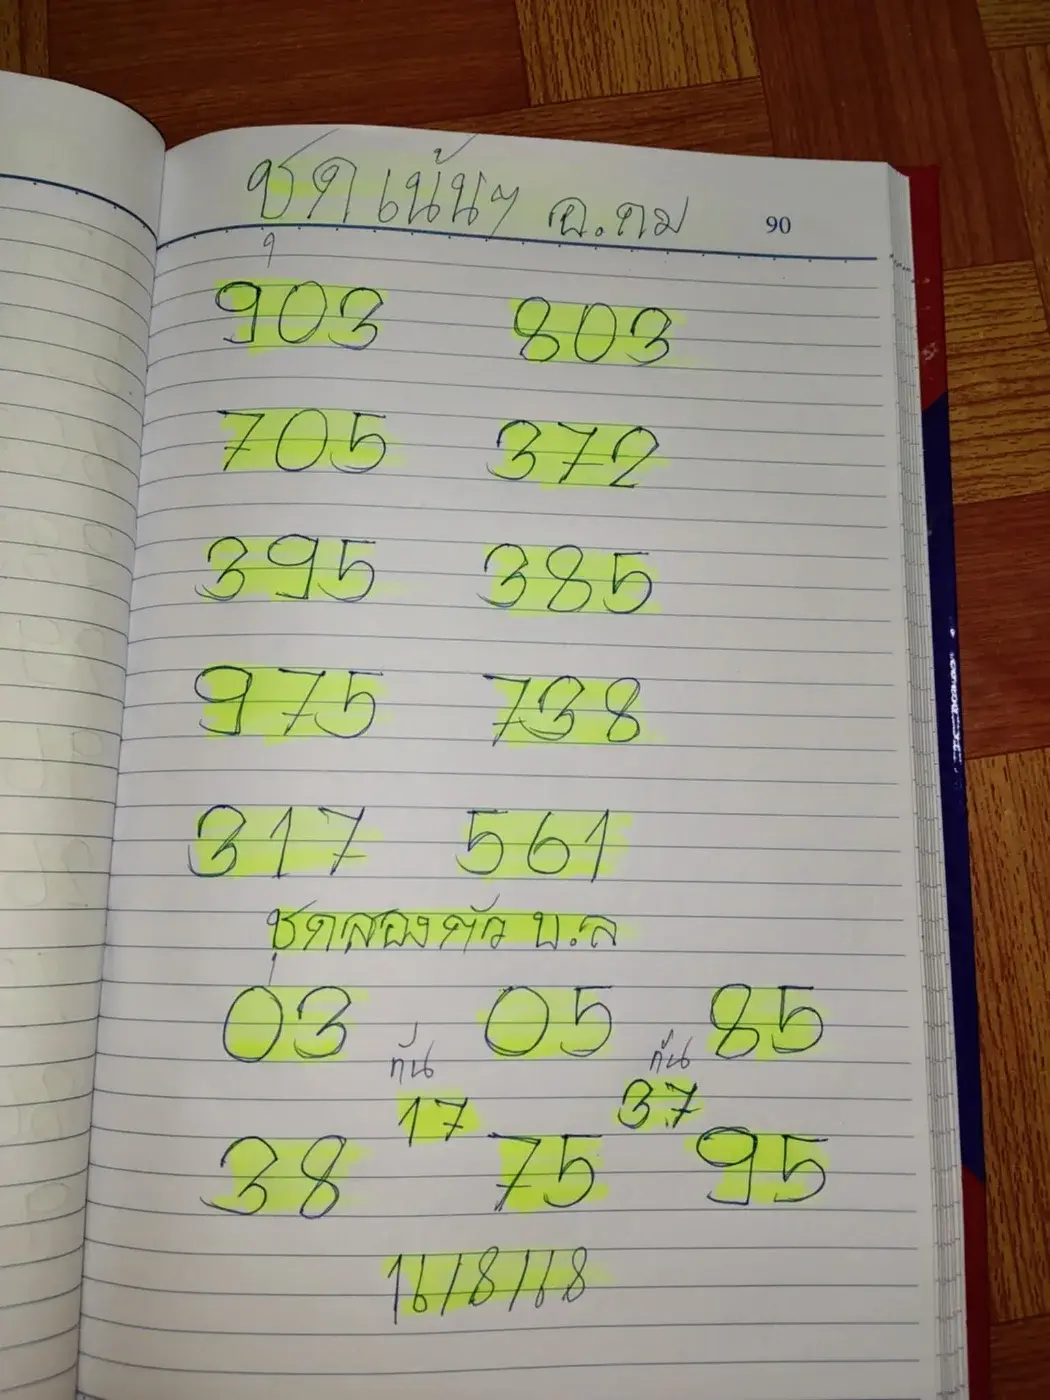 ชุดเน้นๆ อ.กม 90
903 803
705 372
395 385
975 738
317 561
ชุดสองตัว บ.ล
03 05 85
กัน กัน
17 37
38 75 95